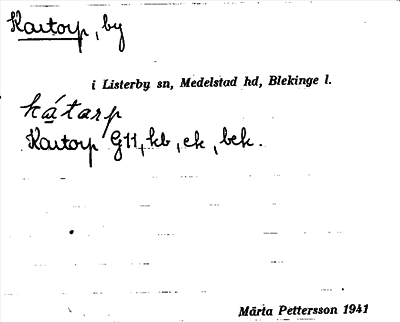 Kartorp, by
i Listerby sn, Medelstad hd, Blekinge l.
Kartorp G11, kb, ek, bek.
Märta Pettersson 1941